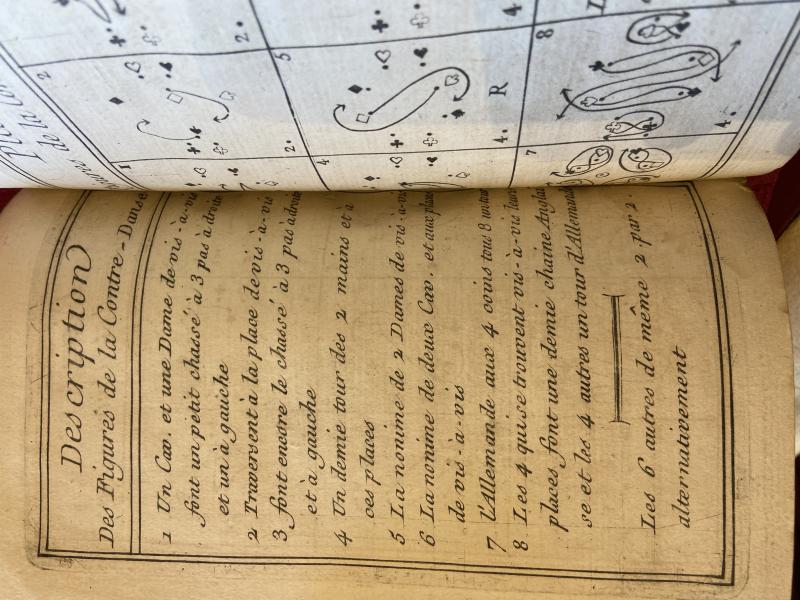 Description
Des Figures de la Contre-Danse
1 Un Cav. et une Dame de vis-à-vis
font un petit chassé à 3 pas à droite
et un à gauche
2 Traversent à la place de vis-à-vis
3 font encore le chassé à 3 pas à droite
et à gauche
4 Un demie tour des 2 mains et à
ces places
5 La nonime de 2 Dames de vis-à-vis
6 La nonime de deux Cav. et aux places
de vis-à-vis
7 L'Allemande aux 4 coins tous 8 un tour
8 Les 4 qui se trouvent vis-à-vis leurs
places font une demie chaine Anglai
se et les 4 autres un tour d'Allemande
Les 6 autres de même 2 par 2.
alternativement
de la
1
2
2.
2.
4
5
4.
4.
R
7
8
4.